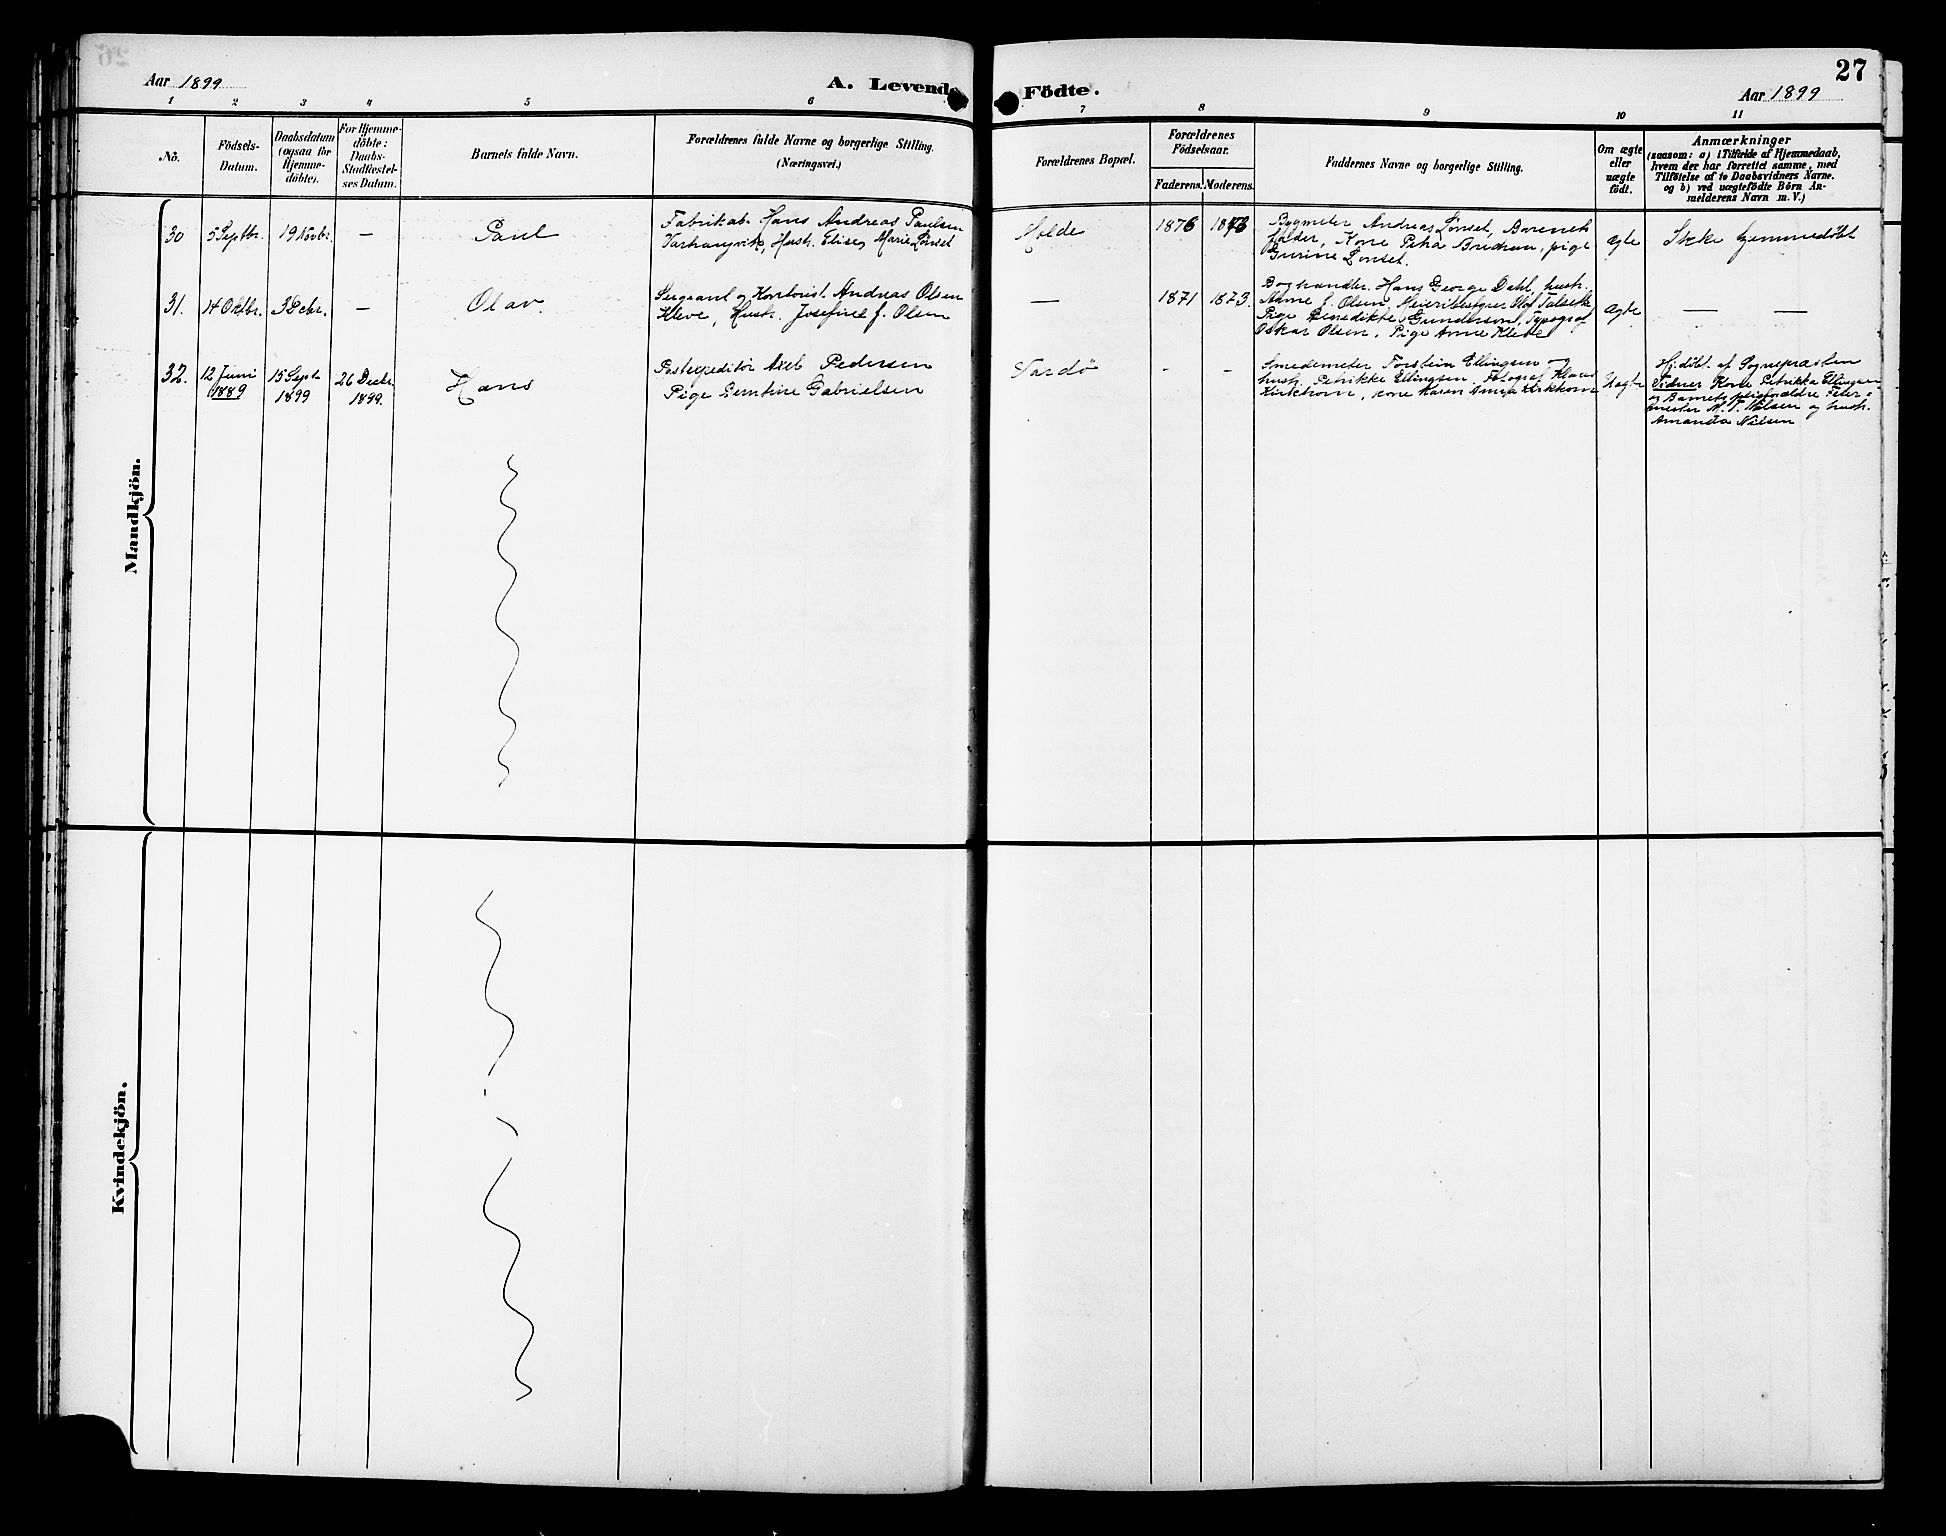 Aar 1899
A. Levende
Födte.
27
Aar 1899
1 2 3 4 5 6 7 8 9 10 11
Nö.
Födsels-
Datum.
Daabsdatum
(ogsaa för
Hjemme-
döbte).
For Hjemme-
döbte:
Daabs-
Stadfæstel-
ses Datum.
Barnets fulde Navn.
Forældrenes fulde Navne og borgerlige Stilling.
(Næringsvei.)
Forældrenes Bopæl.
Forældrenes
Födselsaar.
Faderens. Moderens.
Faddernes Navne og borgerlige Stilling.
Om ægte
eller
uægte
født.
Anmærkninger
(saasom: a) i Tilfælde af Hjemmedaab,
hvem der har forrettet samme, med
Tilföielse af to Daabsvidners Navne.
og b) ved uægtefödte Börn An-
melderens Navn m. V.)
Mandkjön.
30
5 Septbr.
19 Novbr.
—
Paul
Fabrikab. Hans Andreas Paulsen
Varhaugvik, Hustr. Elise Marie Lønset
Molde
1876
1873
Bygmester Andreas Lønset,
Kone Petra, pige
Gurine Lønset.
Ægte
Ikke hjemmedøbt
31.
14 Oktbr.
3 Decbr.
—
Olav.
Sergeant og Kontorist Andreas Olsen
Kleve, Hustr. Josefine f. Olsen
—
1871
1873.
Boghandler Hans George Dahl, hustr.
f. Olsen, Meieribestyrer Olof
Pige Benedikte Gundersen, Typograf
Oskar Olsen, Pige Anne Kleve
Ægte
— —
32.
12 Juni
1889
15 Sept
1899
26 Decbr.
1899.
Hans
Postexpeditör Axel Pedersen
Pige Berntine Gabrielsen
Vardö
-
-
Smedemester Torstein Ellingsen og
hustr. Petrikke Ellingsen, Fotograf Klaus
Kirkhorn, kone Karen Kirkhorn
Uægte
Hj.döbt. af Sognepræsten
Vidner Kone Petrikka Ellingsen
og Barnets pleieforældre
mester M. T. Nilsen og hustr.
Amanda Nilsen
Kvindekjön.